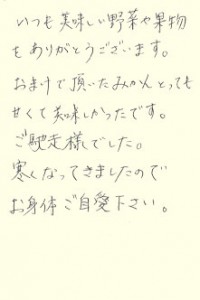 いつも美味しい野菜や果物
をありがとうございます。
おまけで頂いたみかんとっても
甘くて美味しかったです。
ご馳走様でした。
寒くなってきましたので
お身体ご自愛下さい。